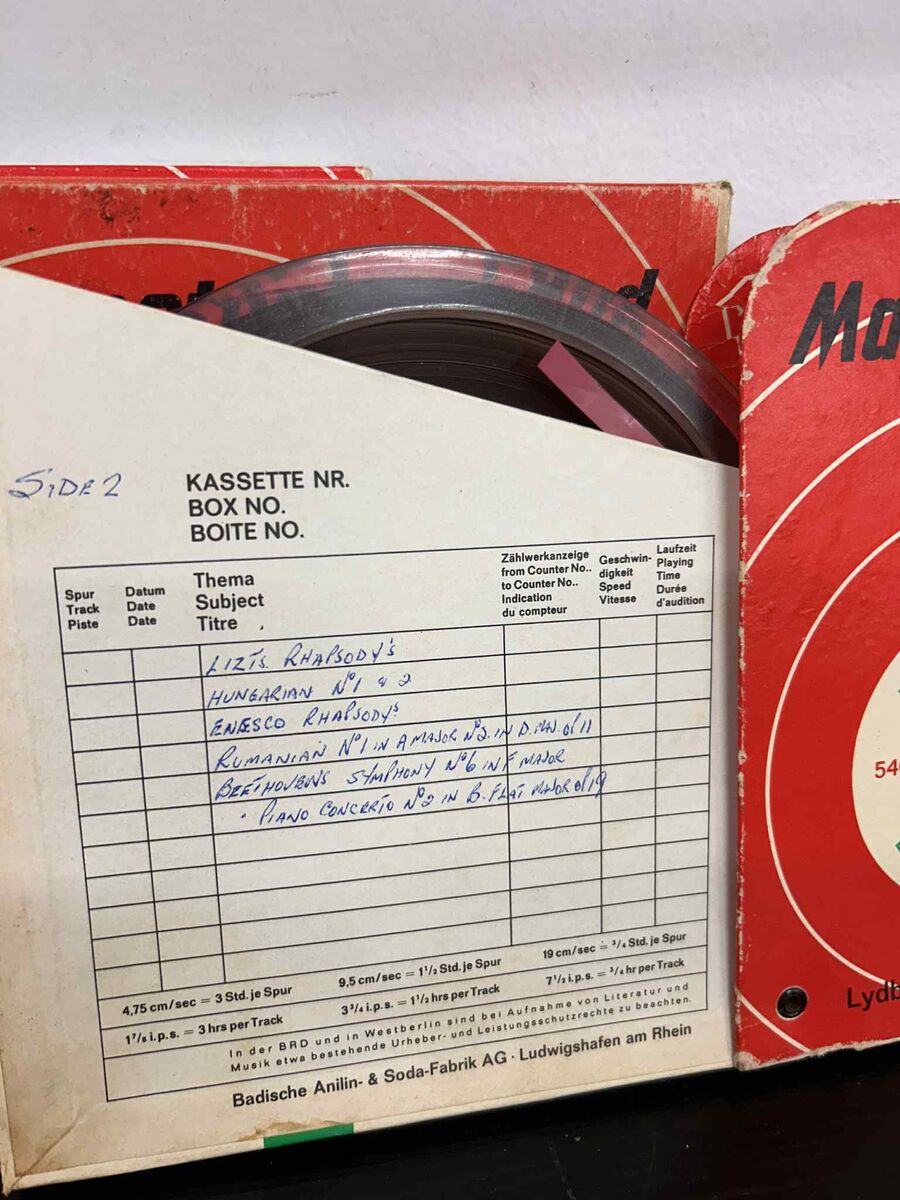 Ma
SIDE 2
KASSETTE NR.
BOX NO.
BOITE NO.
Spur
Track
Piste
Datum
Date
Date
Thema
Subject
Titre
Zählwerkanzeige
from Counter No..
to Counter No..
Indication
du compteur
Geschwin-
digkeit
Speed
Vitesse
Laufzeit
Playing
Time
Durée
d'audition
LIZTS. RHAPSODY'S
HUNGARIAN Nº1 & 2
ENESCO RHAPSODYS
RUMANIAN Nº1 IN A MAJOR Nº2. IN D. MAJ. OP 11
BEETHOVENS SYMPHONY Nº6 IN F MAJOR
" PIANO CONCERTO Nº2 IN B. FLAT MAJOR OP19
4,75 cm/sec = 3 Std. je Spur
9,5 cm/sec = 1 1/2 Std. je Spur
19 cm/sec = 3/4 Std. je Spur
1 7/8 i.p.s. = 3 hrs per Track
3 3/4 i.p.s. = 1 1/2 hrs per Track
7 1/2 i.p.s. = 3/4 hr per Track
In der BRD und in Westberlin sind bei Aufnahme von Literatur und
Musik etwa bestehende Urheber- und Leistungsschutzrechte zu beachten.
Badische Anilin- & Soda-Fabrik AG · Ludwigshafen am Rhein
540
Lydb